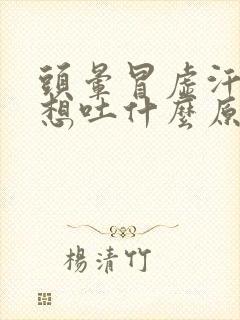 頭暈冒虛汗
想吐什麼原
楊清竹